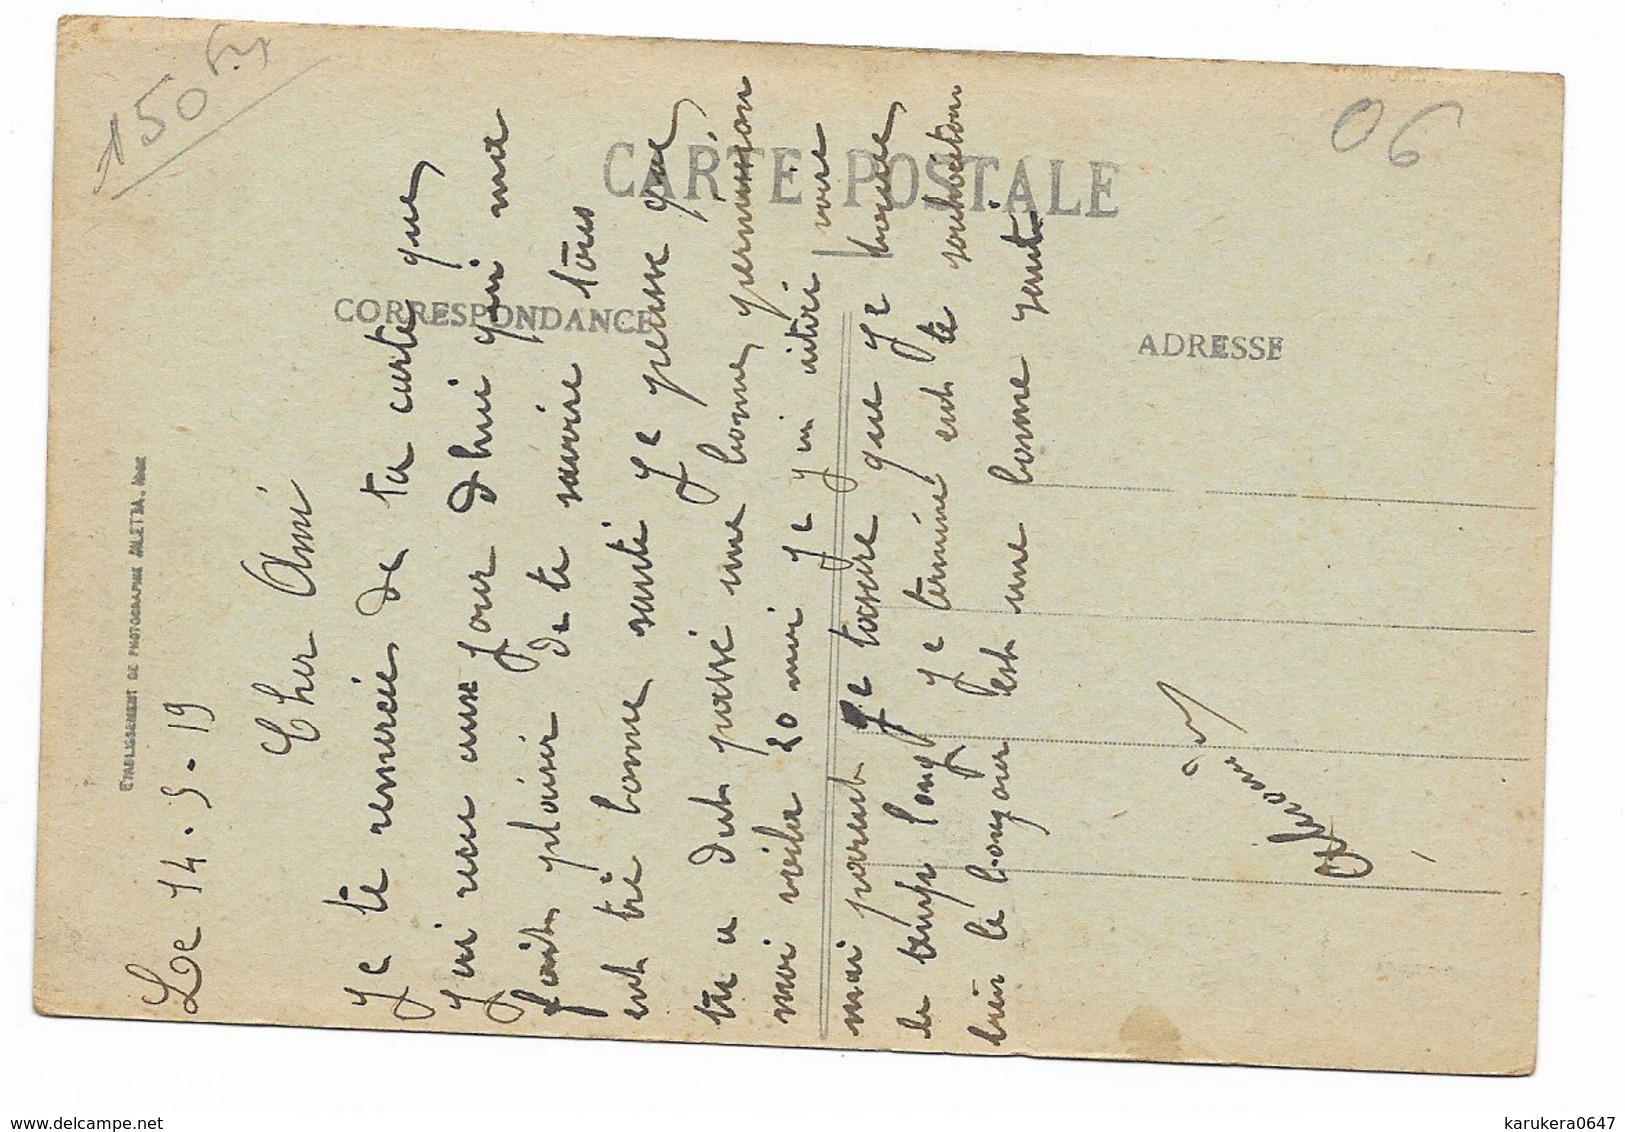 150 frs
06
CARTE POSTALE
CORRESPONDANCE
ADRESSE
ETABLISSEMENT DE PHOTOGRAPHIE GILETTA, NICE
Le 14.5.19
Cher Ami
Je te remercie de ta carte que
J'ai reçu ausse jour dhui qui me
faits plaisir de te savoire tous
est trè bonne santé Je pensse que
tu a dut passé une bonne permission
moi voila 20 moi Je ni
mai parent Je que Je
le temps long Je terminé ent te souhaitan
bien le bonjour est une bonne santé
karukera0647